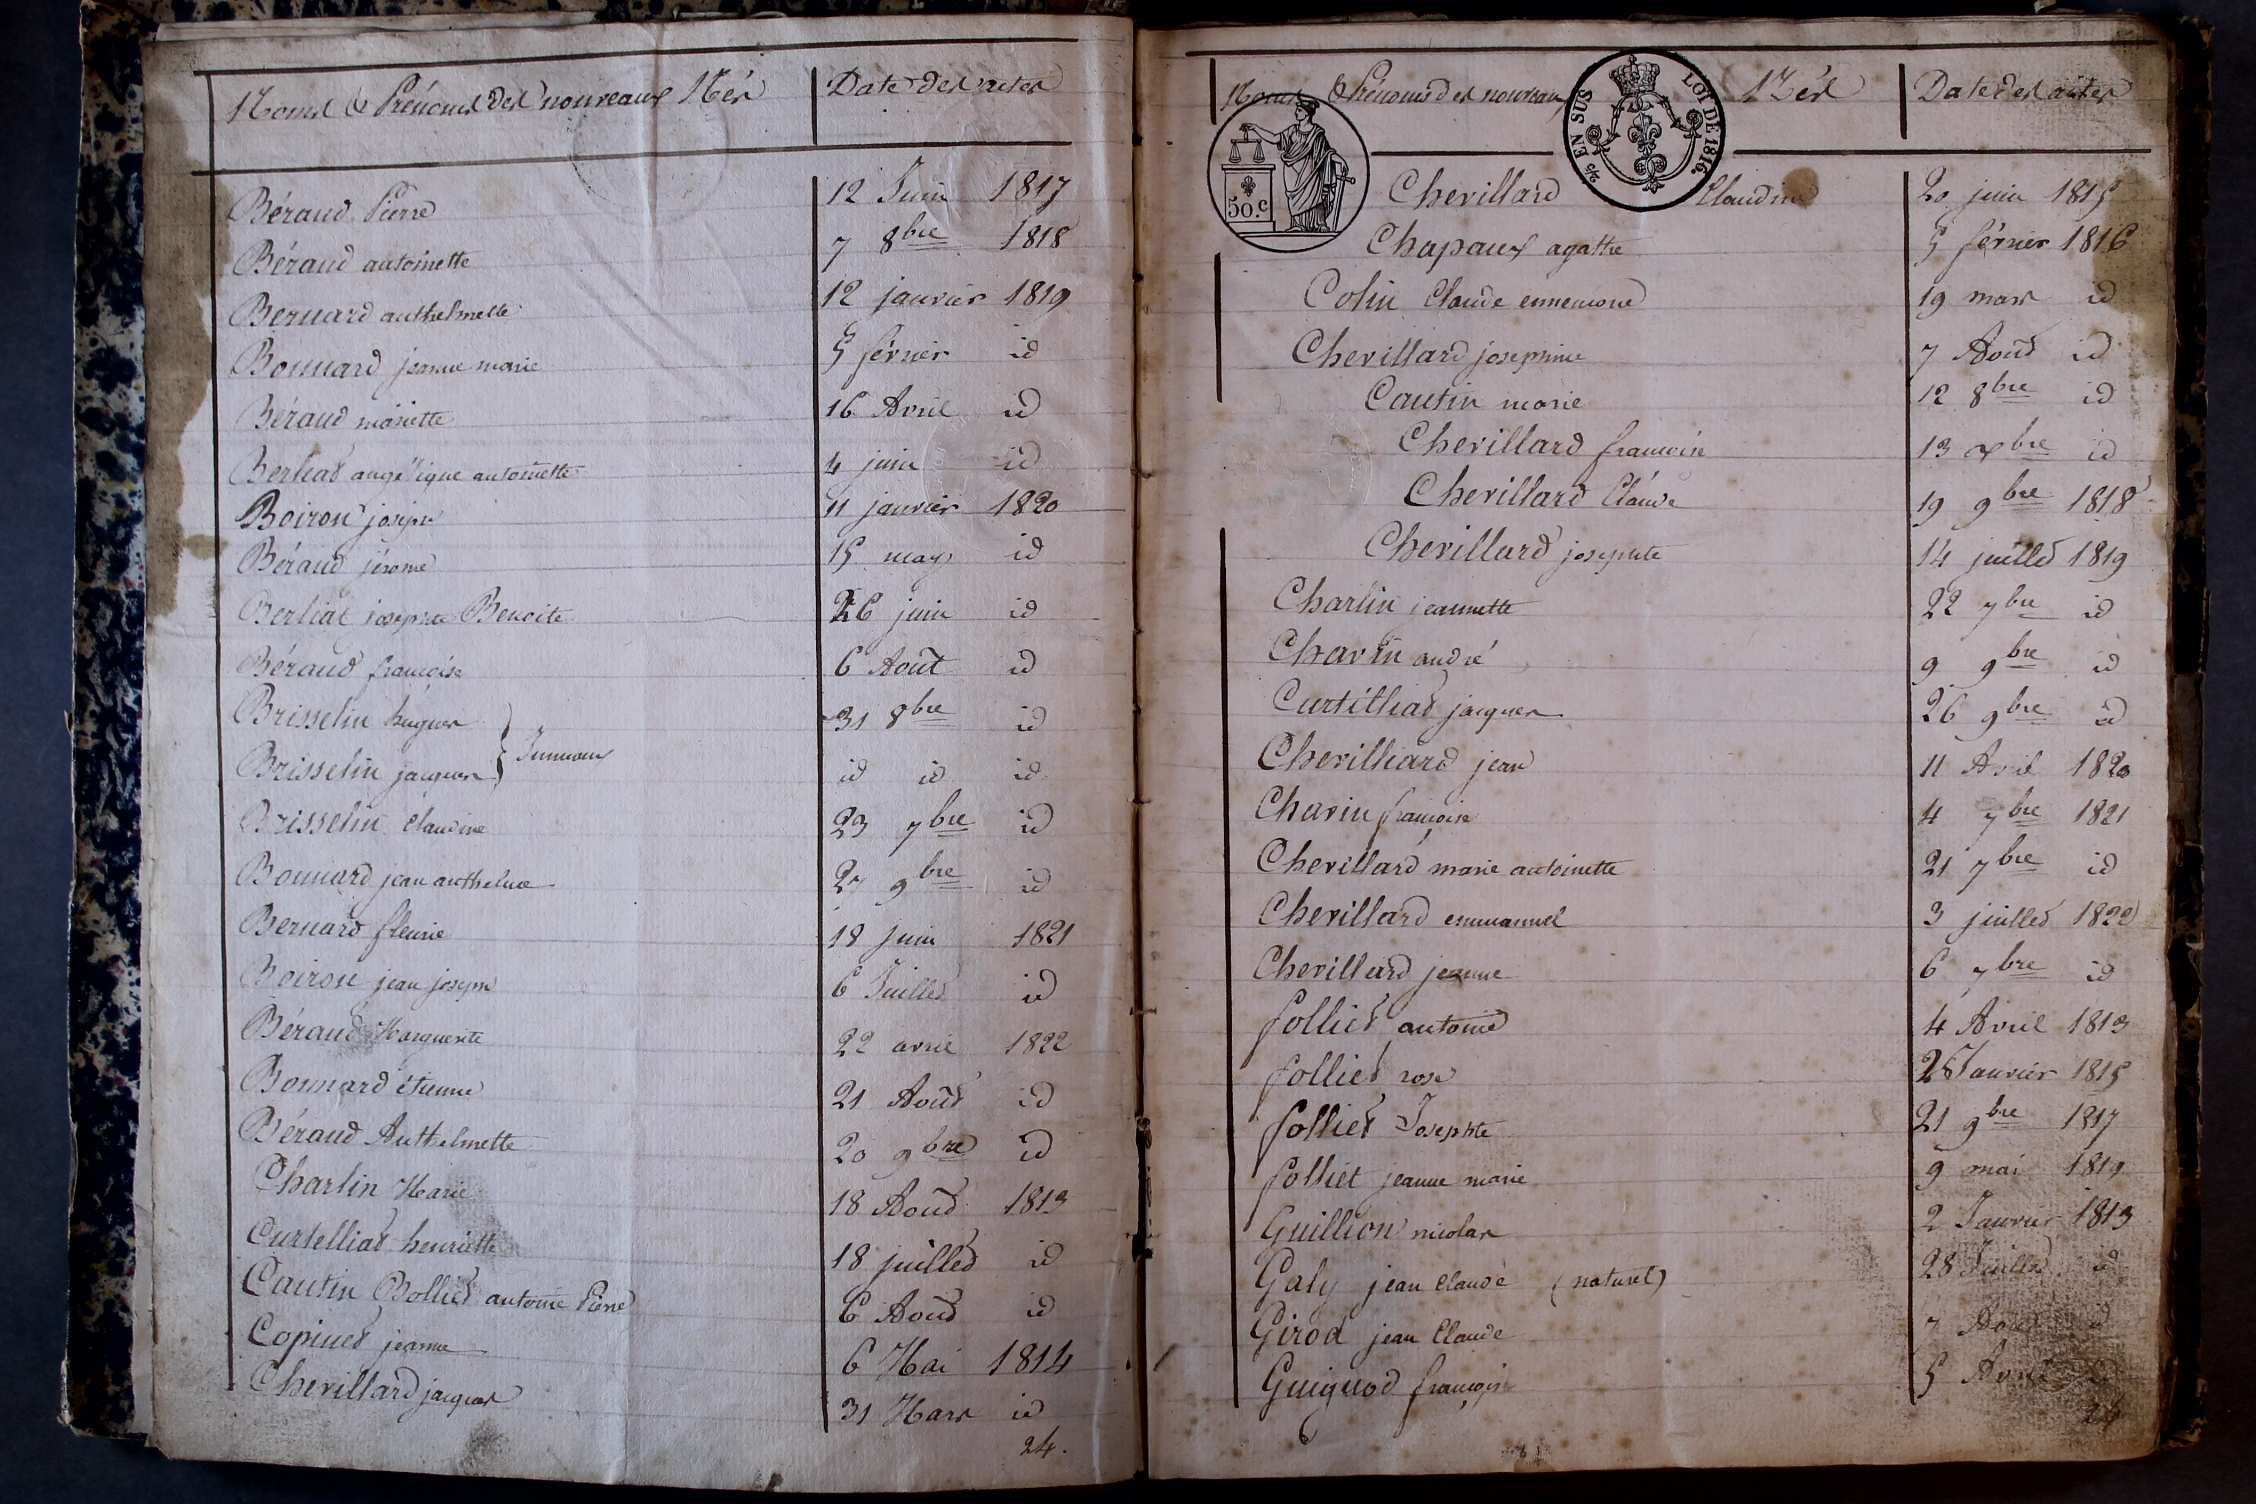 Noms & Prénoms des nouveaux Nés Date des actes
Béraud Pierre 12 Juin 1817
Béraud antoinette 7 8bre 1818
Bernard anthelmette 12 janvier 1819
Bonnard jeanne marie 5 février id
Béraud mariette 16 Avril id
Berliat angélique antoinette 4 juin id
Boiron joseph 11 janvier 1820
Béraud jérome 15 may id
Berliat josephte Benoite 26 juin id
Béraud francoise 6 Août id
Brisselin hugues 31 8bre id
Jumeaux
Brisselin jacques id id id
Brisselin Claudine 23 7bre id
Bonnard jean anthelme 27 9bre id
Bernard fleurie 18 juin 1821
Boiron jean joseph 6 Juillet id
Béraud Marguerite 22 avril 1822
Bonnard étienne 21 Août id
Béraud Anthelmette 20 9bre id
Charlin Marie 18 Août 1813
Curtelliat henriette 18 juillet id
Cautin Bolliet antoine Pierre 6 Août id
Copinet jeanne 6 Mai 1814
Chevillard jacques 31 Mars id
24.
Noms & Prénoms des nouveaux Nés Date des actes
2/5 EN SUS
LOI DE 1816.
50.c
Chevillard Claudine 20 juin 1815
Chapaux agathe 5 février 1816
Colin Claude ennemond 19 mars id
Chevillard josephine 7 Août id
Cautin marie 12 8bre id
Chevillard francois 13 xbre id
Chevillard Claude 19 9bre 1818
Chevillard josephte 14 juillet 1819
Charlin jeannette 22 7bre id
Chavin andré 9 9bre id
Curtilliat jacques 26 9bre id
Chevilliard jean 11 Avril 1820
Chavin françoise 4 7bre 1821
Chevillard marie antoinette 21 7bre id
Chevillard emmanuel 3 juillet 1822
Chevillard jeanne 6 7bre id
folliet antoine 4 Avril 1813
folliet rose Janvier 1815
folliet Josephte 21 9bre 1817
folliet jeanne marie 9 mai 1819
Guillion nicolas 2 Janvier 1813
Galy jean Claude (naturel) 28 Juillet id
Girod jean Claude 7 Août id
Guiguod françois 5 Avril
24